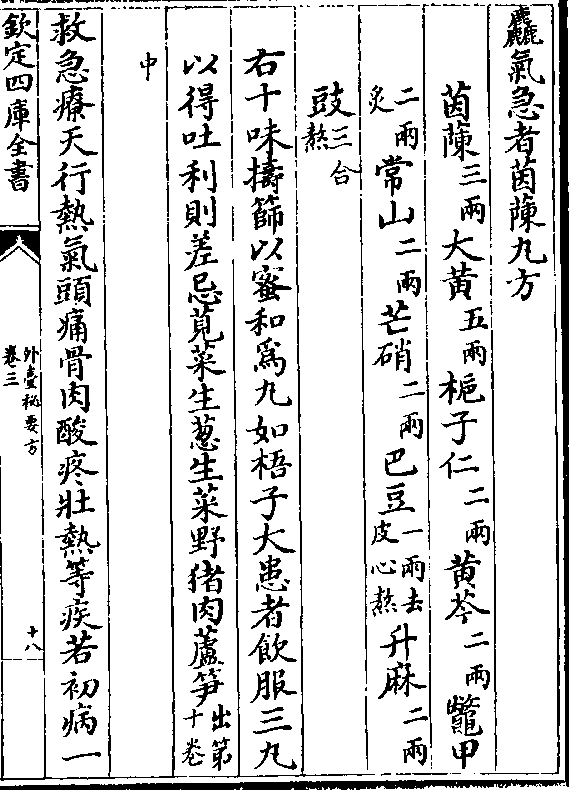 麤氣急者茵蔯丸方
茵蔯三兩大黄五兩梔子仁二兩黄芩二兩鼈甲
二兩炙常山二兩芒硝二兩巴豆一兩去皮心熬升麻二兩
豉三合熬
右十味擣篩以蜜和為丸如梧子大患者飲服三丸
以得吐利則差忌莧菜生葱生菜野猪肉蘆笋出第十卷
中
救急療天行熱氣頭痛骨肉酸疼壯熱等疾若初病一
欽定四庫全書
外臺秘要方
卷三
十八